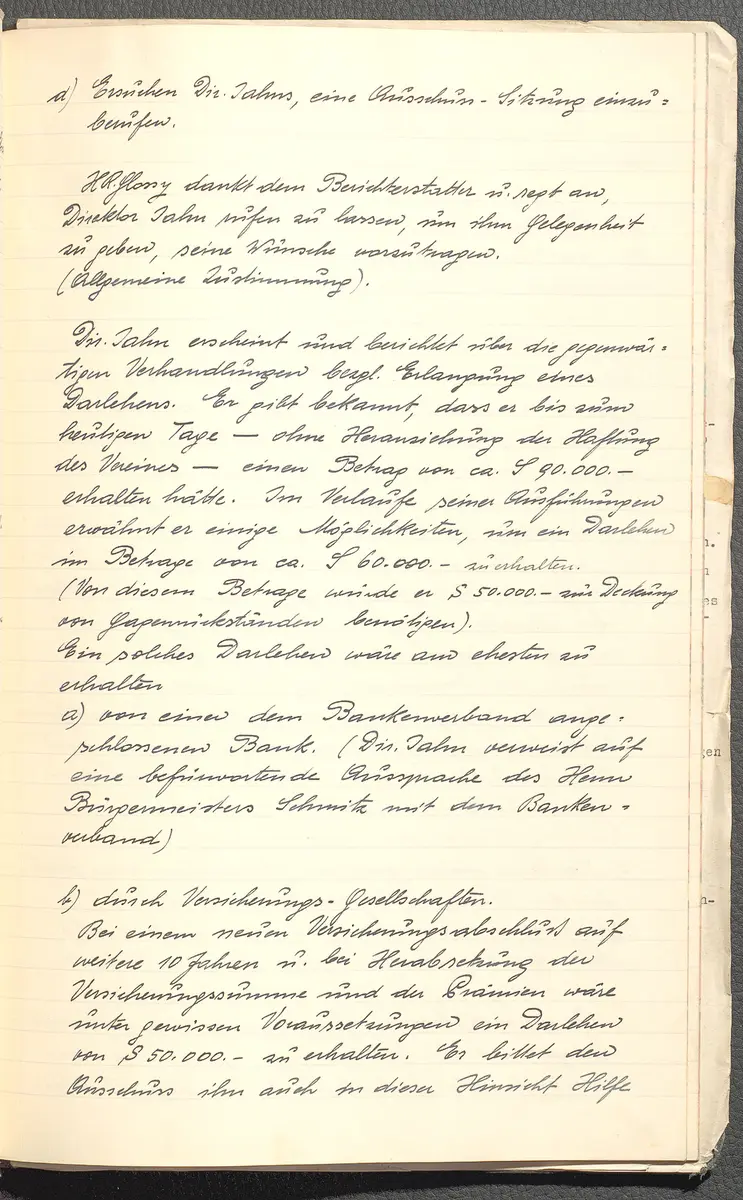 d) Ersuchen Dir. Jahns, eine Ausschuss-Sitzung einzu=
berufen.
HR. Glossy dankt dem Berichterstatter u. regt an,
Direktor Jahn rufen zu lassen, um ihm Gelegenheit
zu geben, seine Wünsche vorzutragen.
(Allgemeine Zustimmung).
Dir. Jahn erscheint und berichtet über die gegenwär=
tigen Verhandlungen bezgl. Erlangung eines
Darlehens. Er gibt bekannt, dass er bis zum
heutigen Tage — ohne Heranziehung der Haftung
des Vereines — einen Betrag von ca. S 90.000.–
erhalten hätte. Im Verlaufe seiner Ausführungen
erwähnt er einige Möglichkeiten, um ein Darlehen
im Betrage von ca. S 60.000.– zu erhalten.
(Von diesem Betrage würde er S 50.000.– zur Deckung
von Gagenrückständen benötigen).
Ein solches Darlehen wäre am ehesten zu
erhalten
a) von einer dem Bankenverband ange=
schlossenen Bank. (Dir. Jahn verweist auf
eine befürwortende Aussprache des Herrn
Bürgermeisters Schmitz mit dem Banken=
verband)
b) durch Versicherungs-Gesellschaften.
Bei einem neuen Versicherungsabschluss auf
weitere 10 Jahren u. bei Herabsetzung der
Versicherungssumme und der Prämien wäre
unter gewissen Voraussetzungen ein Darlehen
von S 50.000.– zu erhalten. Er bittet den
Ausschuss ihm auch in dieser Hinsicht Hilfe